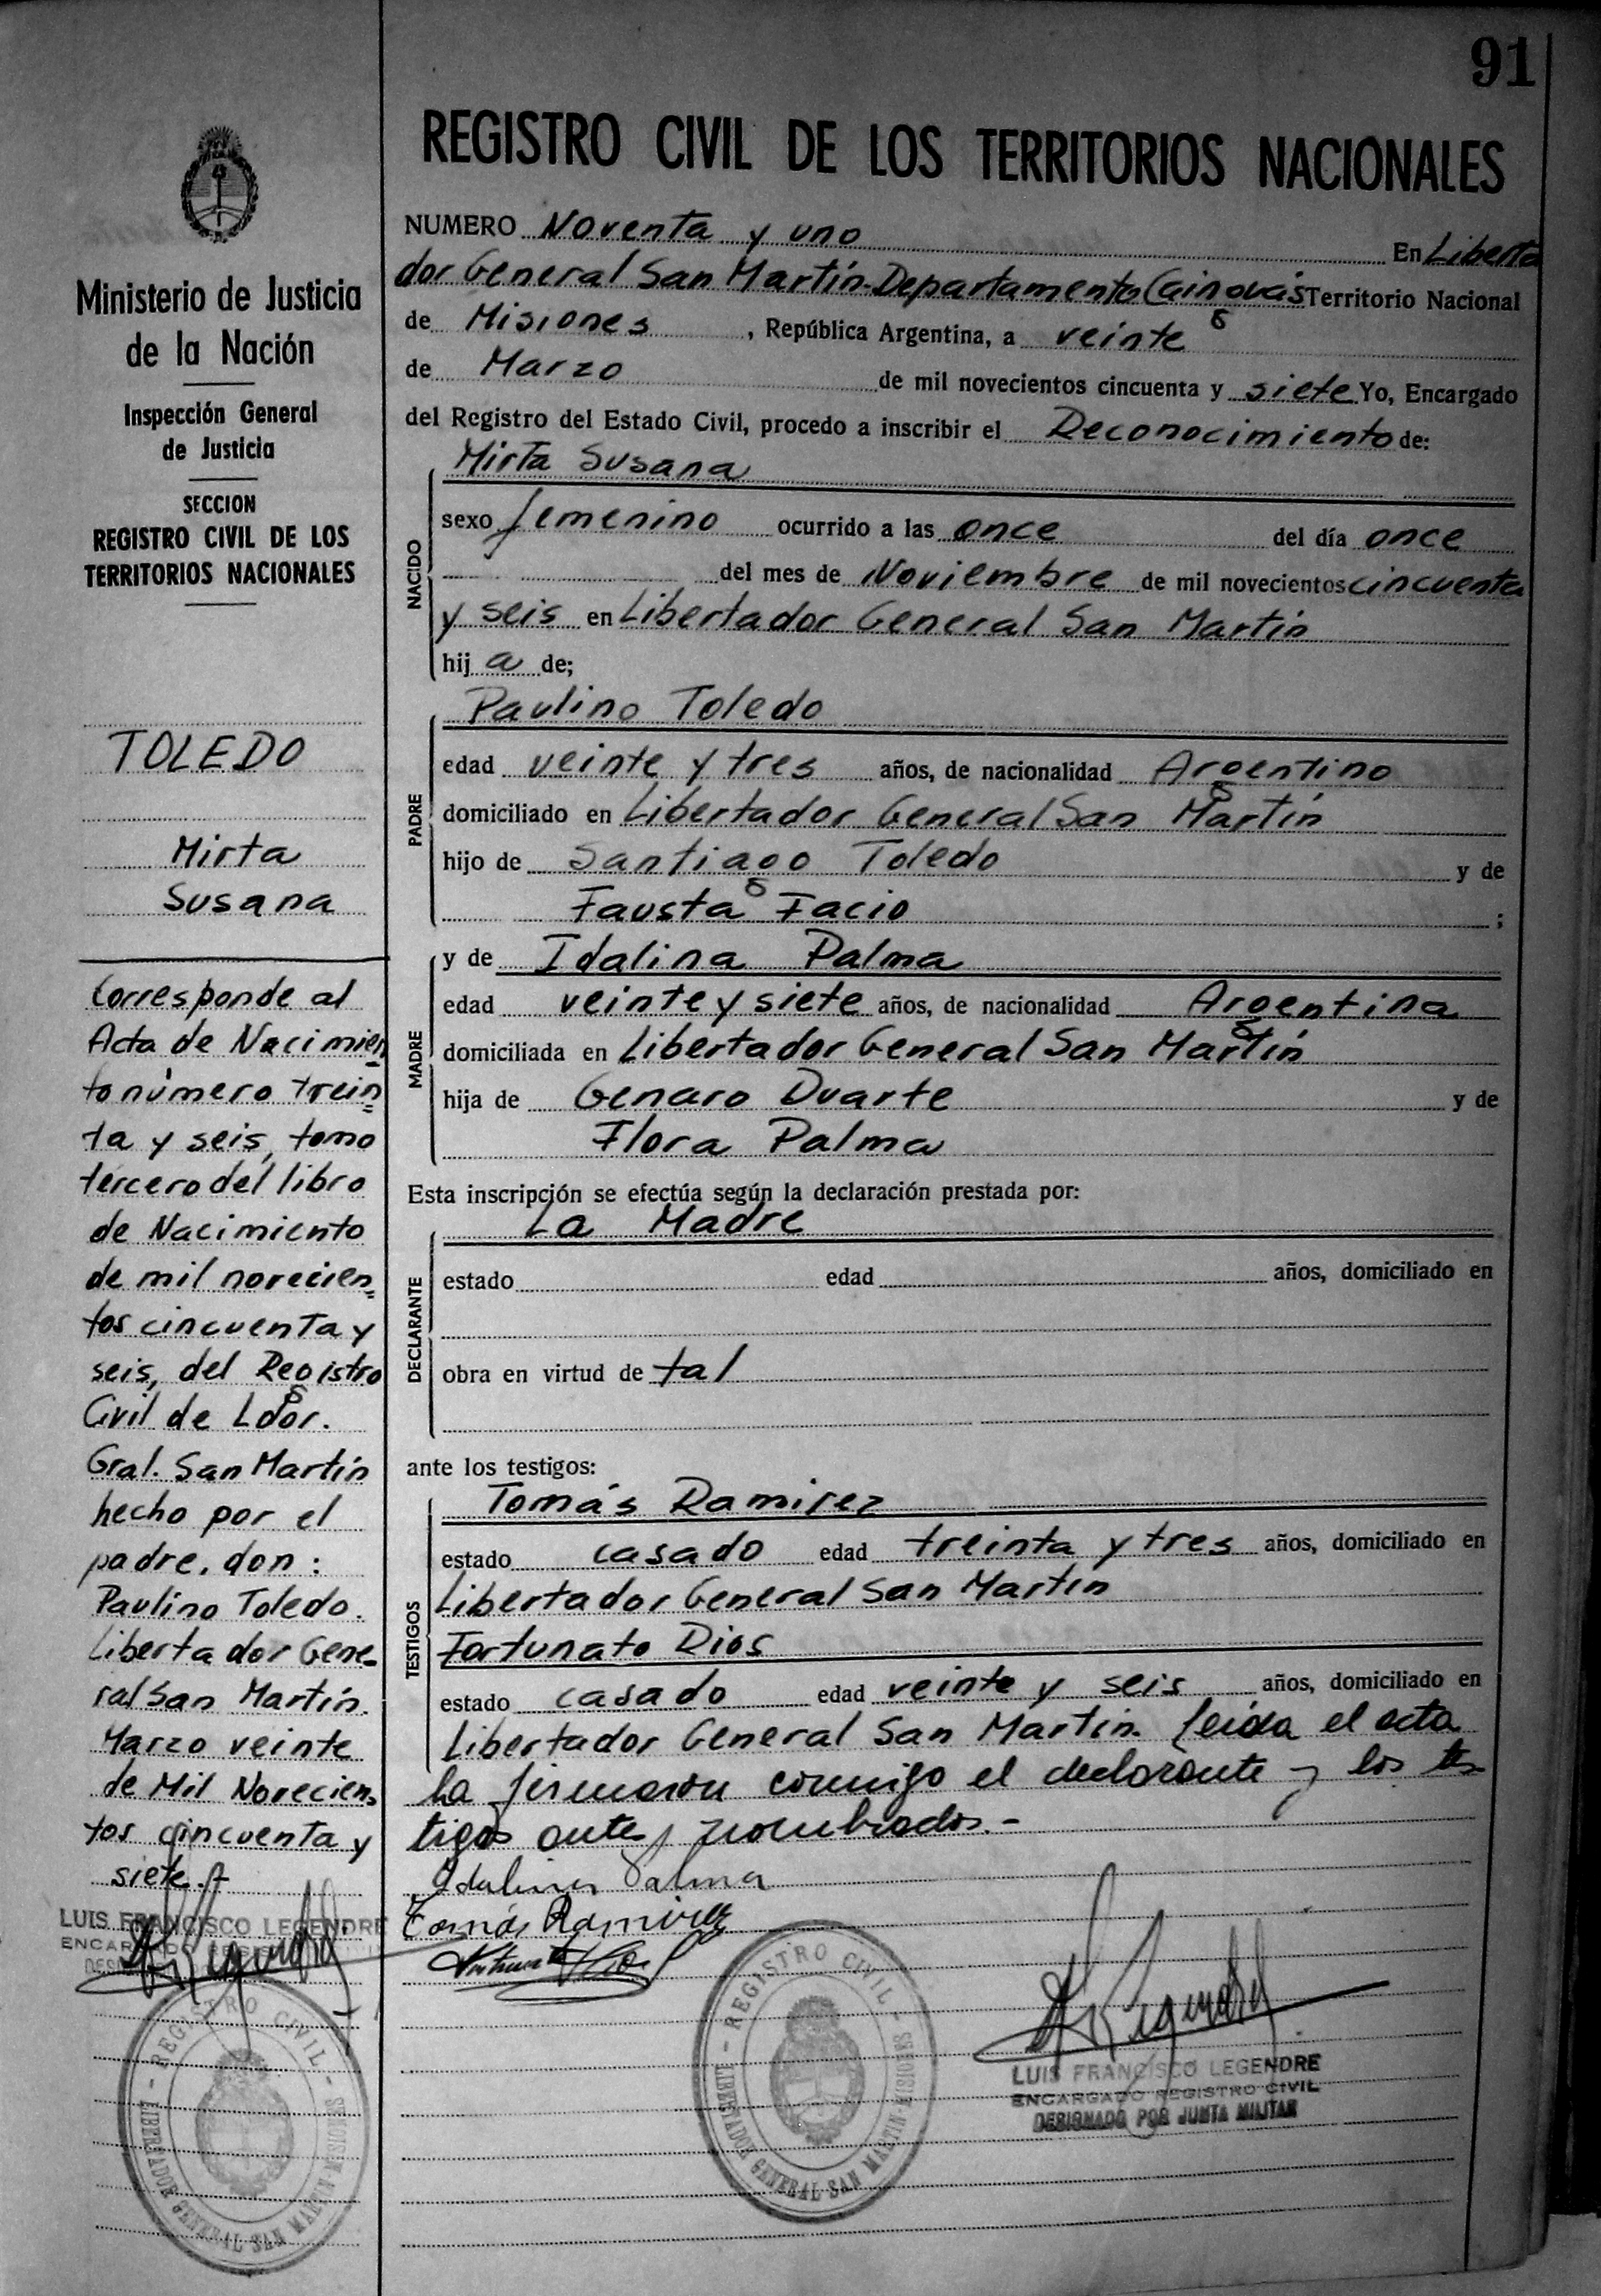 91
REGISTRO CIVIL DE LOS TERRITORIOS NACIONALES
NUMERO Noventa y uno En Liberta
dor General San Martín-Departamento Cainguás Territorio Nacional
de Misiones, República Argentina, a veinte
de Marzo de mil novecientos cincuenta y siete Yo, Encargado
del Registro del Estado Civil, procedo a inscribir el Reconocimiento de:
Mirta Susana
NACIDO
sexo femenino ocurrido a las once del día once
del mes de Noviembre de mil novecientos cincuenta
y seis en Libertador General San Martín
hij a de;
PADRE
Paulino Toledo
edad veinte y tres años, de nacionalidad Argentino
domiciliado en Libertador General San Martín
hijo de Santiago Toledo y de
Fausta Facio ;
MADRE
y de Idalina Palma
edad veinte y siete años, de nacionalidad Argentina
domiciliada en Libertador General San Martín
hija de Genaro Duarte y de
Flora Palma
Esta inscripción se efectúa según la declaración prestada por:
La Madre
DECLARANTE
estado edad años, domiciliado en
obra en virtud de tal
ante los testigos:
TESTIGOS
Tomás Ramirez
estado casado edad treinta y tres años, domiciliado en
Libertador General San Martín
Fortunato Rios
estado casado edad veinte y seis años, domiciliado en
Libertador General San Martín. leída el acta
la firmaron conmigo el declarante y los tes
tigos antes nombrados.-
Idalina Palma
Tomás Ramirez
REGISTRO CIVIL - MISIONES
LIBERTADOR GENERAL SAN MARTIN
LUIS FRANCISCO LEGENDRE
ENCARGADO REGISTRO CIVIL
DESIGNADO POR JUNTA MILITAR
Ministerio de Justicia
de la Nación
Inspección General
de Justicia
SECCION
REGISTRO CIVIL DE LOS
TERRITORIOS NACIONALES
TOLEDO
Mirta
Susana
Corresponde al
Acta de Nacimien
to número trein
ta y seis, tomo
tercero del libro
de Nacimiento
de mil novecien
tos cincuenta y
seis, del Registro
Civil de Ldor.
Gral. San Martín
hecho por el
padre, don:
Paulino Toledo.
Libertador Gene-
ral San Martín.
Marzo veinte
de Mil Novecien
tos cincuenta y
siete.-
LUIS FRANCISCO LEGENDRE
REGISTRO CIVIL - MISIONES
LIBERTADOR GENERAL SAN MARTIN